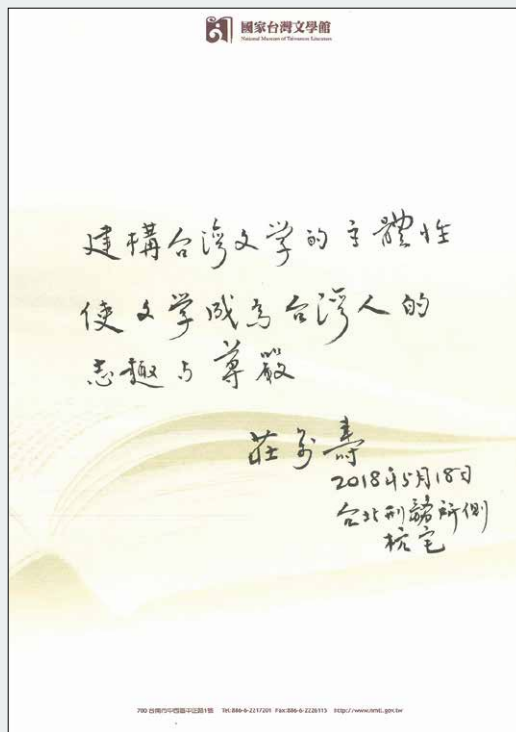 國家台灣文學館
National Museum of Taiwanese Literature
建構台湾文学的主體性
使文学成為台湾人的
志趣与尊嚴
莊万壽
2018年5月18日
台北刑務所側
杭宅
700 台南市中西區中正路1號 Tel:886-6-2217201 Fax:886-6-2226115 http://www.nmtl.gov.tw